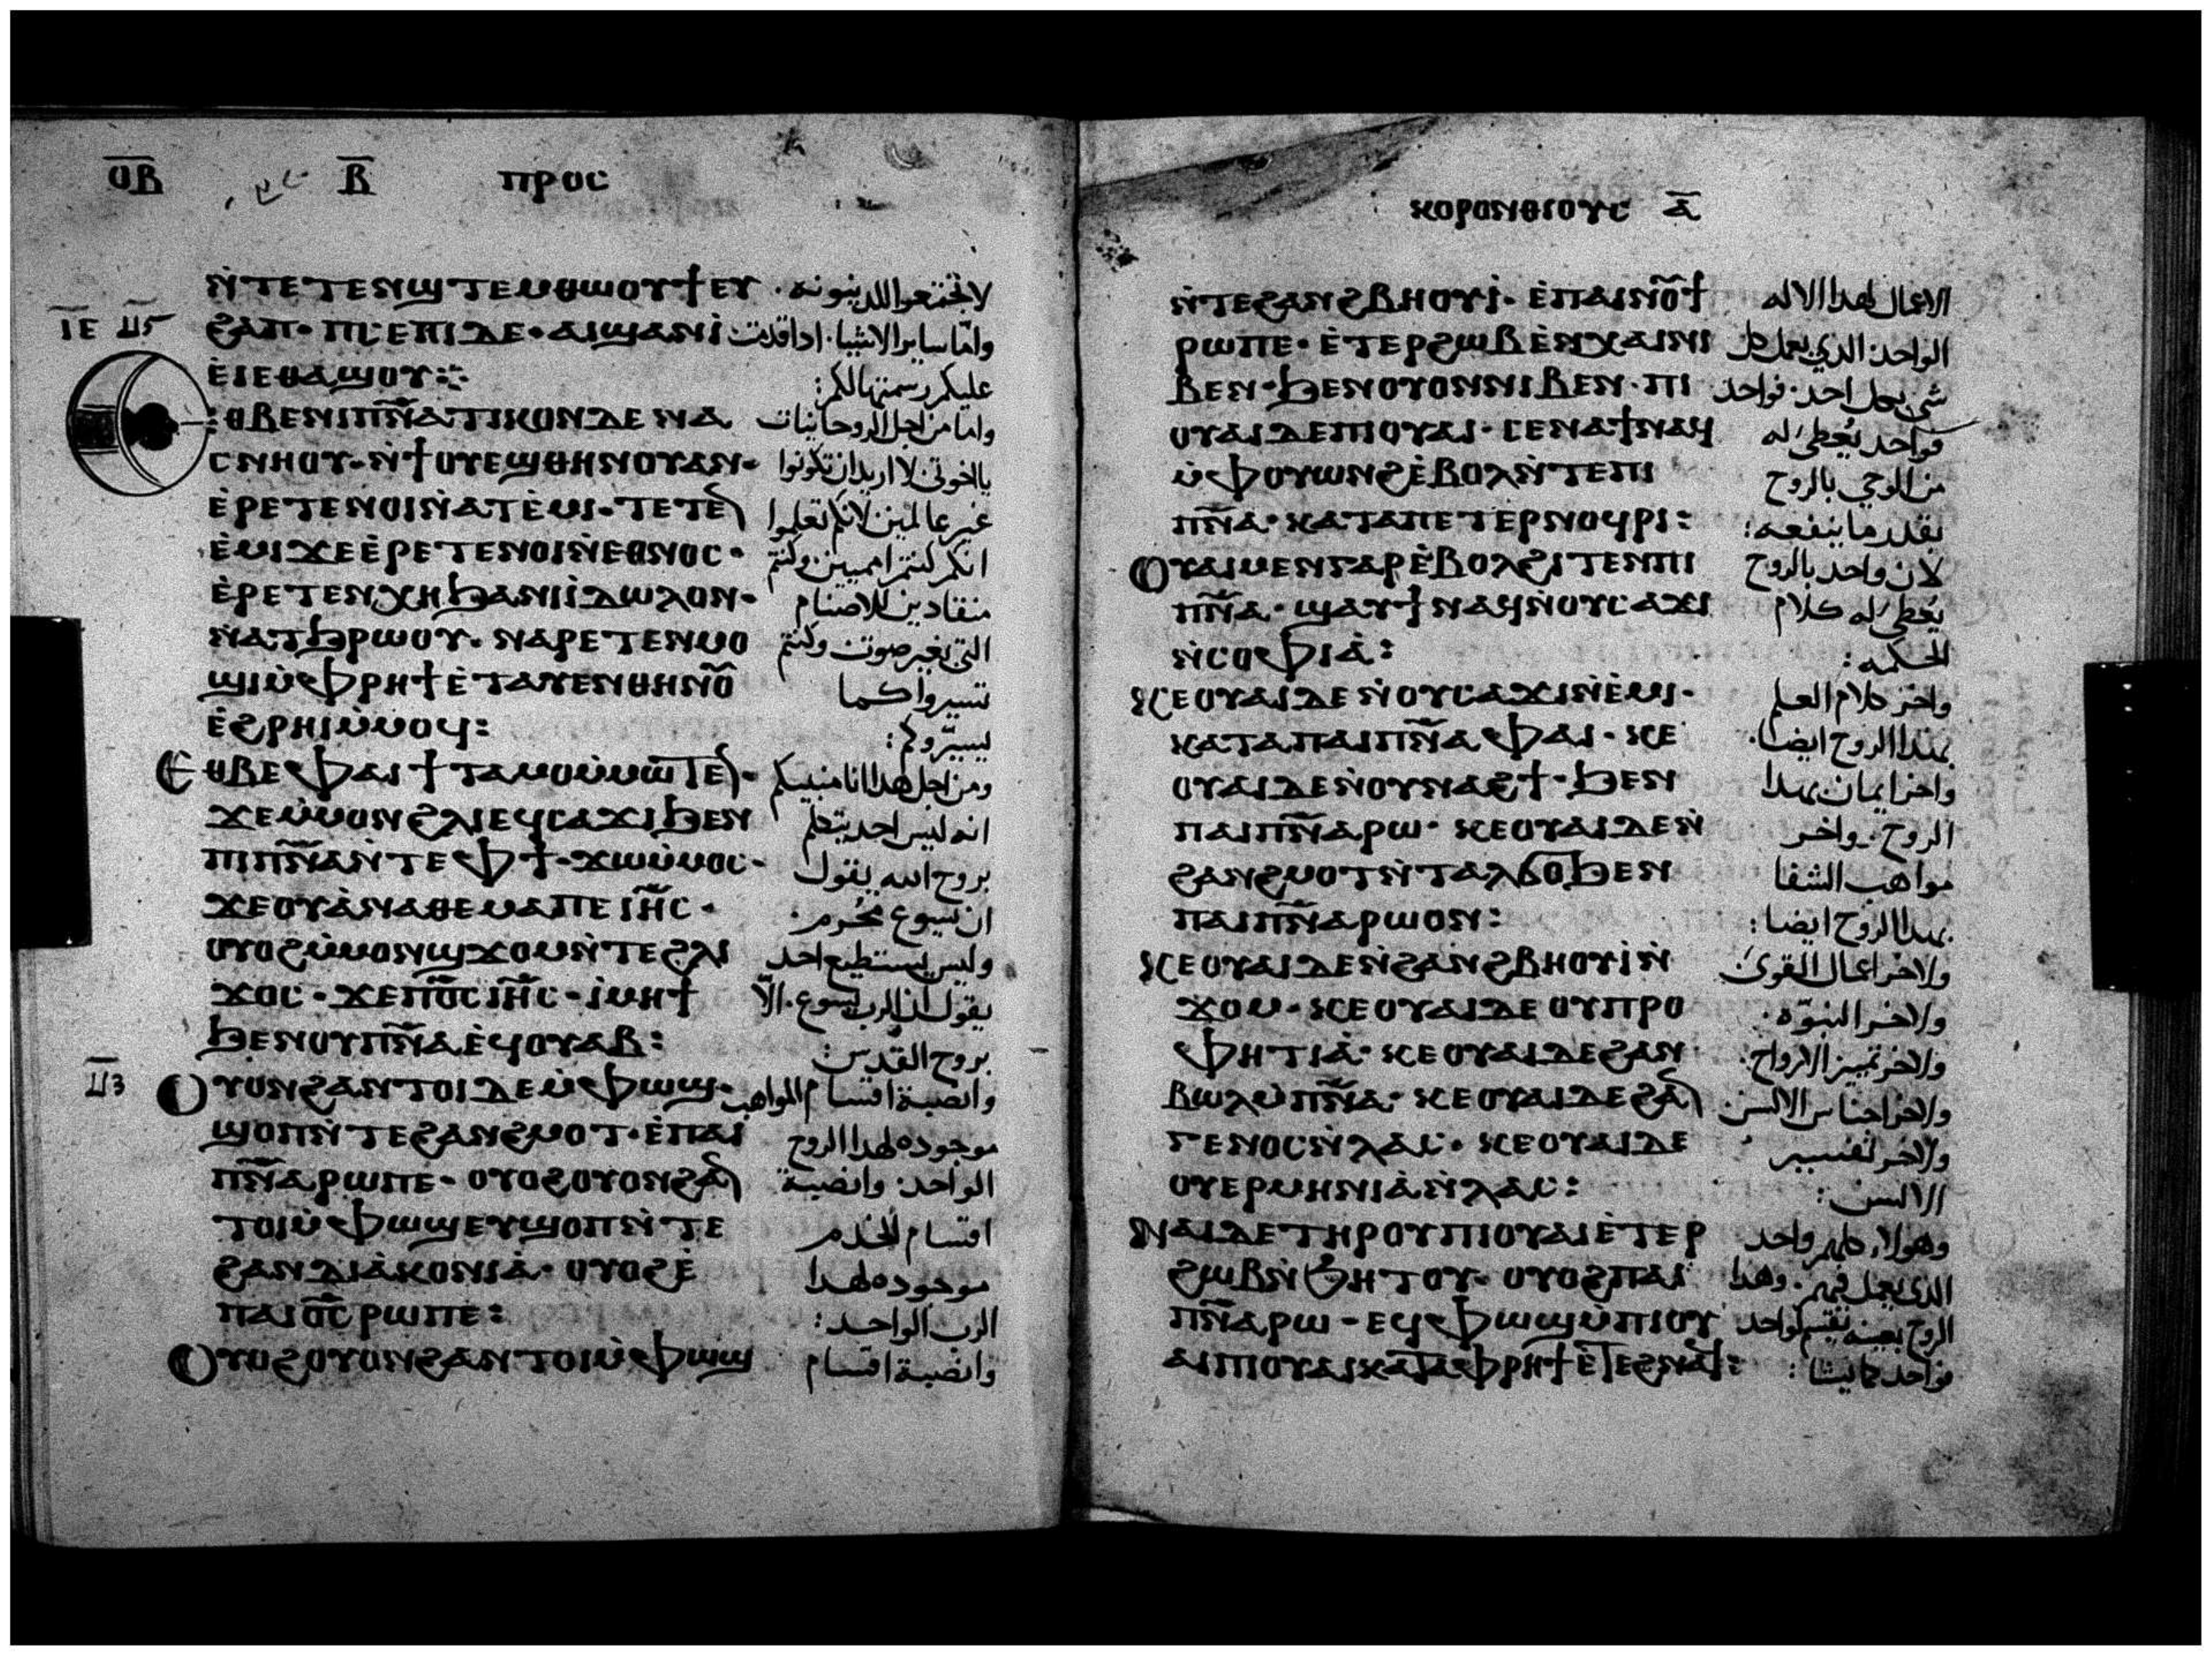 ⲞⲂ Ⲃ ⲠⲢⲞⲤ
ⲚⲦⲈⲦⲈⲚϢⲦⲈⲘⲐⲰⲞⲨϮⲈⲨ لا تجتمعوا للدينونه
ⲒⲈ
ϨⲀⲠ· ⲠⲤⲈⲠⲒⲆⲈ· ⲀⲒϢⲀⲚⲒ واما ساير الاشيا· ادا قدمت
ⲈⲒⲈⲐⲀϢⲞⲨ: عليكم رسمتها لكم:
ⲈⲐⲂⲈⲚⲒⲠⲚⲀⲦⲒⲔⲞⲚⲆⲈ ⲚⲀ واما من اجل الروحانيات
ⲤⲚⲎⲞⲨ· ⲚϮⲞⲨⲈϢⲐⲎⲚⲞⲨⲀⲚ· يا اخوتى لا اريد ان تكونوا
ⲈⲢⲈⲦⲈⲚⲞⲒⲚⲀⲦⲈⲘⲒ· ⲦⲈⲦⲈ غير عالمين لانكم تعلموا
ⲈⲘⲒϪⲈⲈⲢⲈⲦⲈⲚⲞⲒⲚⲈⲐⲚⲞⲤ· انكم كنتم امميين وكنتم
ⲈⲢⲈⲦⲈⲚⲬⲎϦⲀⲚⲒⲒⲆⲰⲖⲞⲚ· منقادين للاصنام
ⲚⲀⲦϦⲢⲰⲞⲨ· ⲚⲀⲢⲈⲦⲈⲚⲘⲞ التى بغير صوت وكنتم
ϢⲒⲘⲪⲢⲎϮⲈⲦⲀⲨⲈⲚⲐⲎⲚⲞ تسيروا كما
ⲈϨⲢⲎⲒⲘⲘⲞϤ: ليسيروكم:
ⲈⲐⲂⲈⲪⲀⲒϮⲦⲀⲘⲞⲘⲘⲰⲦⲈ· ومن اجل هدا انا منبيكم
ϪⲈⲘⲘⲞⲚϨⲖⲒⲈϤⲤⲀϪⲒϦⲈⲚ انه ليس احد يتكلم
ⲠⲒⲠⲚⲀⲚⲦⲈⲪϮ· ϪⲰⲘⲘⲞⲤ· بروح الله يقول
ϪⲈⲞⲨⲀⲚⲀⲐⲈⲘⲀⲠⲈⲒⲎⲤ· ان يسوع محروم·
ⲞⲨⲞϨⲘⲘⲞⲚϢϪⲞⲘⲚⲦⲈϨⲖⲒ وليس يستطيع احد
ϪⲞⲤ· ϪⲈⲠⲞⲤⲒⲎⲤ· ⲒⲘⲎϮ يقول ان الرب يسوع· الّا
ϦⲈⲚⲞⲨⲠⲚⲀⲈϤⲞⲨⲀⲂ: بروح القدس:
ⲞⲨⲞⲚϨⲀⲚⲦⲞⲒⲆⲈⲘⲪⲰϢ· وانصبة اقسام المواهب
ϢⲞⲠⲚⲦⲈϨⲀⲚϨⲘⲞⲦ· ⲈⲠⲀⲒ موجوده لهدا الروح
ⲠⲚⲀⲢⲰⲠⲈ· ⲞⲨⲞϨⲞⲨⲞⲚϨⲀ الواحد· وانصبة
ⲦⲞⲒⲘⲪⲰϢⲈⲨϢⲞⲠⲚⲦⲈ اقسام الخدم
ϨⲀⲚⲆⲒⲀⲔⲞⲚⲒⲀ· ⲞⲨⲞϨⲈ موجوده لهدا
ⲠⲀⲒⲞⲤⲢⲰⲠⲈ: الرب الواحد:
ⲞⲨⲞϨⲞⲨⲞⲚϨⲀⲚⲦⲞⲒⲘⲪⲰϢ وانصبة اقسام
ⲔⲞⲢⲞⲚⲐⲒⲞⲨⲤ Ⲁ
ⲚⲦⲈϨⲀⲚϨⲂⲎⲞⲨⲒ· ⲈⲠⲀⲒⲚⲞϮ الاعمال لهدا الاله
ⲢⲰⲠⲈ· ⲈⲦⲈⲢϨⲰⲂⲈⲚⲬⲀⲒⲚⲒ الواحد· الدي يعمل كل
ⲂⲈⲚ· ϦⲈⲚⲞⲨⲞⲚⲚⲒⲂⲈⲚ· ⲠⲒ شي بكل احد· فواحد
ⲞⲨⲀⲒⲆⲈⲠⲒⲞⲨⲀⲒ· ⲤⲈⲚⲀϮⲚⲀϤ فواحد يُعطى له
ⲘⲪⲞⲨⲰⲚϨⲈⲂⲞⲖⲚⲦⲈⲠⲒ من الوحي بالروح
ⲠⲚⲀ· ⲔⲀⲦⲀⲠⲈⲦⲈⲢⲚⲞϤⲢⲒ: بقدر ما ينفعه:
ⲞⲨⲀⲒⲘⲈⲚⲄⲀⲢⲈⲂⲞⲖϨⲒⲦⲈⲚⲠⲒ لان واحد بالروح
ⲠⲚⲀ· ϢⲀⲨϮⲚⲀϤⲚⲞⲨⲤⲀϪⲒ يُعطى له كلام
ⲚⲤⲞⲪⲒⲀ: الحكمه:
ⲔⲈⲞⲨⲀⲒⲆⲈⲚⲞⲨⲤⲀϪⲒⲚⲈⲘⲒ· واخر كلام العلم
ⲔⲀⲦⲀⲠⲀⲒⲠⲚⲀⲪⲀⲒ· ⲔⲈ بهدا الروح ايضا·
ⲞⲨⲀⲒⲆⲈⲚⲞⲨⲚⲀϨϮ· ϦⲈⲚ واخر ايمان بهدا
ⲠⲀⲒⲠⲚⲀⲢⲰ· ⲔⲈⲞⲨⲀⲒⲆⲈⲚ الروح· واخر
ϨⲀⲚϨⲘⲞⲦⲚⲦⲀⲖϬⲞϦⲈⲚ مواهب الشفا
ⲠⲀⲒⲠⲚⲀⲢⲰⲞⲚ: بهدا الروح ايضا:
ⲔⲈⲞⲨⲀⲒⲆⲈⲚϨⲀⲚϨⲂⲎⲞⲨⲒⲚ ولاخر اعمال القوى
ϪⲞⲘ· ⲔⲈⲞⲨⲀⲒⲆⲈⲞⲨⲠⲢⲞ ولاخر النبوّه·
ⲪⲎⲦⲒⲀ· ⲔⲈⲞⲨⲀⲒⲆⲈϨⲀⲚ ولاخر تمييز الارواح·
ⲂⲰⲖⲘⲠⲚⲀ· ⲔⲈⲞⲨⲀⲒⲆⲈϨⲀ ولاخر اجناس الالسن
ⲄⲈⲚⲞⲤⲚⲖⲀⲤ· ⲔⲈⲞⲨⲀⲒⲆⲈ ولاخر تفسير
ⲞⲨⲈⲢⲘⲎⲚⲒⲀⲚⲖⲀⲤ: الالسن:
ⲚⲀⲒⲆⲈⲦⲎⲢⲞⲨⲠⲒⲞⲨⲀⲒⲈⲦⲈⲢ وهولاء كلهم واحد
ϨⲰⲂⲚϦⲎⲦⲞⲨ· ⲞⲨⲞϨⲠⲀⲒ الدى يعمل فيهم· وهدا
ⲠⲚⲀⲢⲰ· ⲈϤⲪⲰϢⲘⲠⲒⲞⲨ الروح بعينه يقسم لواحد
ⲀⲒⲠⲒⲞⲨⲀⲒⲔⲀⲦⲀⲪⲢⲎϮⲈⲦⲈϨⲚⲀϤ: فواحد كما يشا: